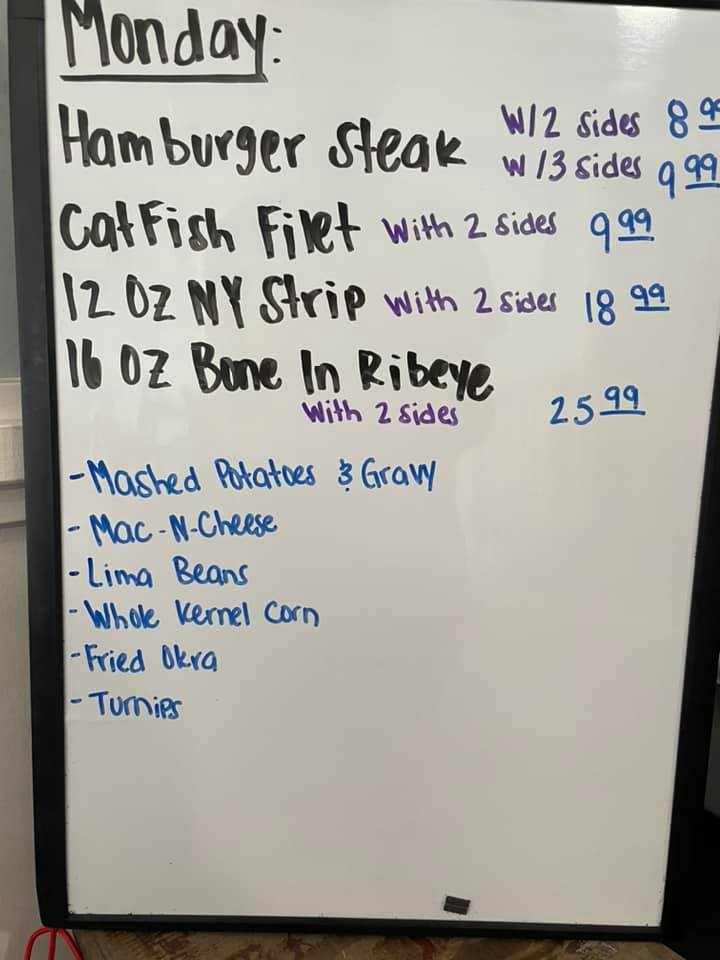 Monday:
Hamburger Steak W/2 sides 8 99
W/3 sides 9 99
CatFish Filet With 2 Sides 9 99
12 Oz NY Strip With 2 Sides 18 99
16 OZ Bone In Ribeye
With 2 Sides 25 99
- Mashed Potatoes & Gravy
- Mac-N-Cheese
- Lima Beans
- Whole Kernel Corn
- Fried Okra
- Turnips